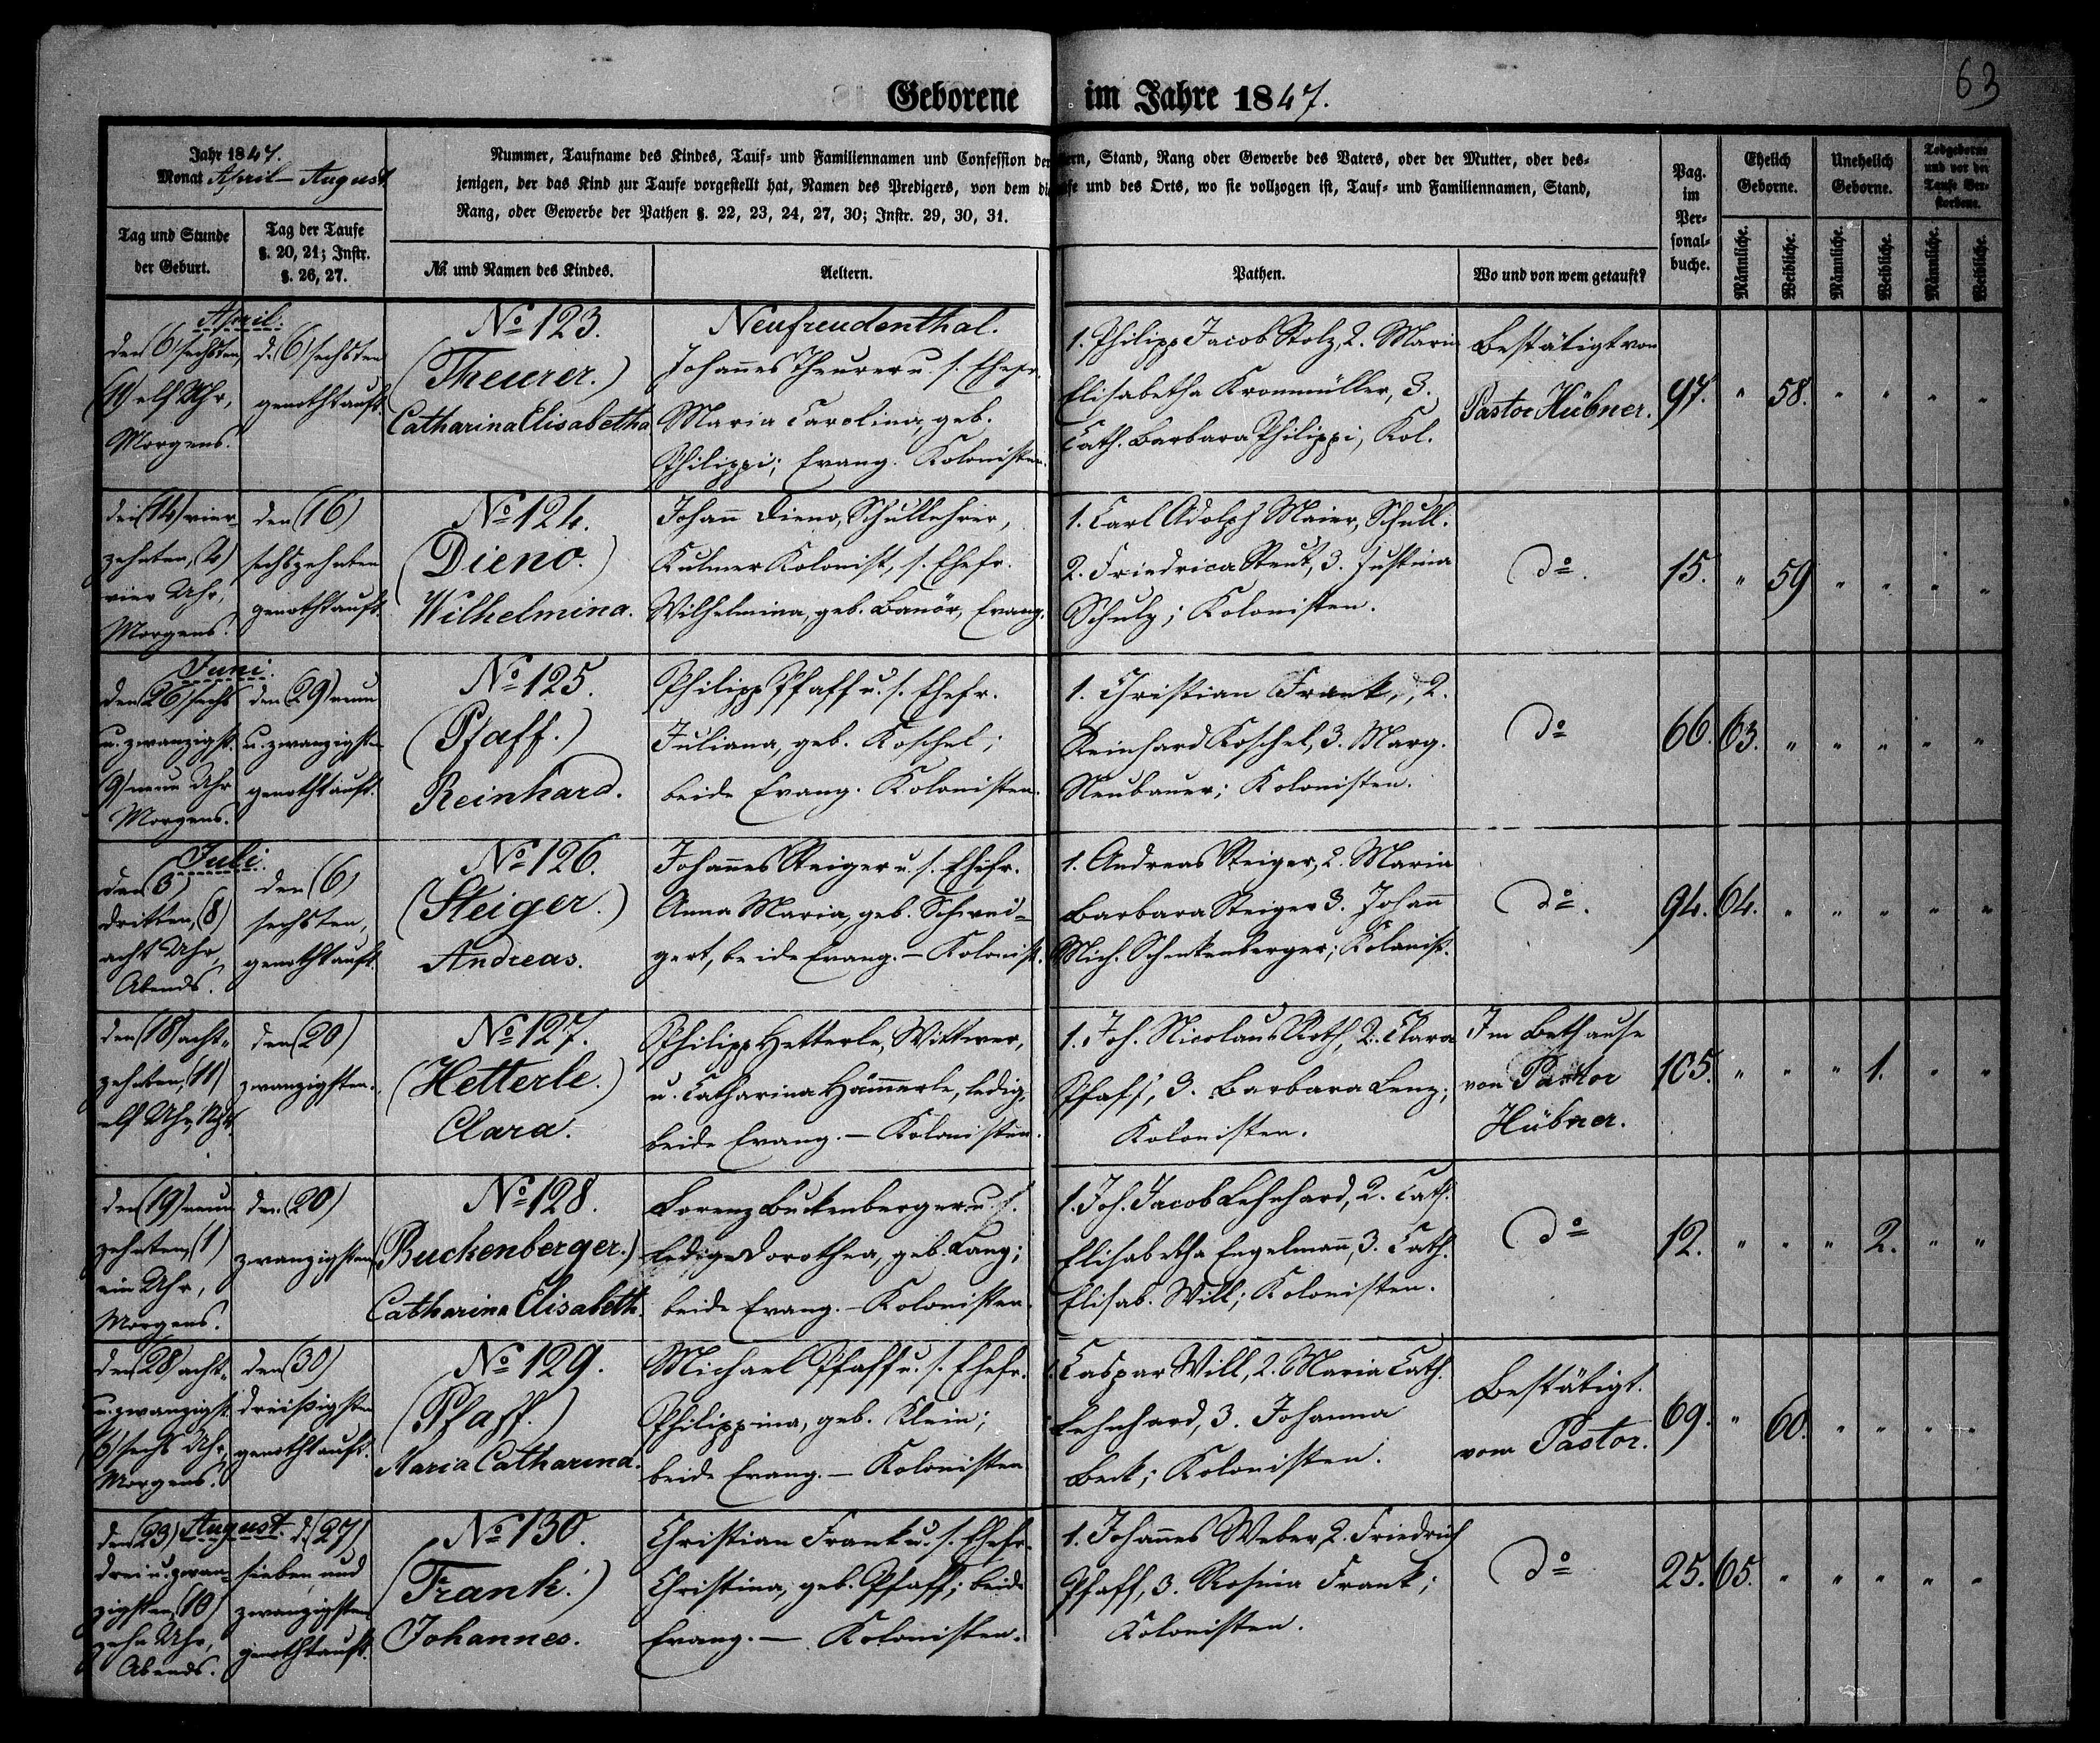 63
Geborene im Jahre 1847.
Jahr 1847.
Monat April – August
Nummer, Taufname des Kindes, Tauf- und Familiennamen und Confession der Aeltern, Stand, Rang oder Gewerbe des Vaters, oder der Mutter, oder des-
jenigen, der das Kind zur Taufe vorgestellt hat, Namen des Predigers, von dem die Taufe und des Orts, wo sie vollzogen ist, Tauf- und Familiennamen, Stand,
Rang, oder Gewerbe der Pathen §. 22, 23, 24, 27, 30; Instr. 29, 30, 31.
Tag und Stunde
der Geburt.
Tag der Taufe
§. 20, 21; Instr.
§. 26, 27.
№ und Namen des Kindes.
Aeltern.
Pathen.
Wo und von wem getauft?
Pag.
im
Per-
sonal-
buche.
Ehelich
Geborne.
Unehelich
Geborne.
Todgeborne
und vor der
Taufe Ver-
storbene.
Männliche.
Weibliche.
Männliche.
Weibliche.
Männliche.
Weibliche.
April.
den (6) sechsten,
(11) elf Uhr,
Morgens.
d. (6) sechsten
genothtauft.
No 123.
(Theurer.)
Catharina Elisabetha
Neufreudenthal.
Johannes Theurer u. s. Ehefr.
Maria Carolina, geb.
Philippi; Evang. Kolonisten.
1. Philipp Jacob Stolz, 2. Maria
Elisabetha Kronmüller, 3.
Cath. Barbara Philippi, Kol.
Bestätigt von
Pastor Hübner.
97. " 58. " " " "
den (14) vier-
zehnten, (4)
vier Uhr,
Morgens.
den (16)
sechszehnten
genothtauft.
No 124.
(Dieno.)
Wilhelmina.
Johann Dieno, Schullehrer,
Kulmer Kolonist, s. Ehefr.
Wilhelmina, geb. Banör, Evang.
1. Carl Adolph Maier, Schull.
2. Friedrica Steut, 3. Justina
Schulz; Kolonisten.
do.
15. " 59 " " " "
Juni.
den (26) sechs
u. zwanzigst.
9) neun Uhr
Morgens.
den (29) neun
u. zwanzigsten
genothtauft.
No 125.
(Pfaff.)
Reinhard.
Philipp Pfaff u. s. Ehefr.
Juliana, geb. Koschel;
beide Evang. Kolonisten.
1. Christian Frank, 2.
Reinhard Koschel, 3. Marg.
Neubauer; Kolonisten.
do
66. 63. " " " " "
Juli.
den (3)
dritten, (8)
acht Uhr,
Abends.
den (6)
sechsten,
genothtauft.
No 126.
(Steiger.)
Andreas.
Johannes Steiger u. s. Ehefr.
Anna Maria, geb. Schwei-
gert, beide Evang. – Kolonist.
1. Andreas Steiger, 2. Maria
Barbara Steiger 3. Johann
Mich. Schenkenberger; Kolonist.
do.
94. 64. " " " " "
den (18) acht-
zehnten, (11)
elf Uhr,
den (20)
zwanzigsten.
No 127.
(Hetterle.)
Clara.
Philipp Hetterle, Wittwer,
u. Catharina Hämmerle, ledig,
beide Evang. – Kolonisten.
1. Joh. Nicolaus Roth, 2. Clara
Pfaff, 3. Barbara Lenz;
Kolonisten.
Im Bethause
von Pastor
Hübner.
105. " " " 1. " "
den (19) neun
zehnten, (1)
ein Uhr,
Morgens.
den (20)
zwanzigsten
No 128.
(Buckenberger.)
Catharina Elisabeth.
Lorenz Buckenberger u. s.
ledige Dorothea, geb. Lang;
beide Evang. – Kolonisten.
1. Joh. Jacob Lehnhard, 2. Cath.
Elisabetha Engelmann, 3. Cath.
Elisab. Will; Kolonisten.
do
12. " " " 2. " "
den (28) acht-
u. zwanzigst.
(6) sechs Uhr,
Morgens.
den (30)
dreißigsten
genothtauft.
No 129.
(Pfaff.)
Maria Catharina.
Michael Pfaff u. s. Ehefr.
Philippina, geb. Klein;
beide Evang. – Kolonisten
1. Caspar Will, 2. Maria Cath.
Lehnhard, 3. Johanna
Beck; Kolonisten.
Bestätigt.
vom Pastor.
69. " 60. " " " "
August.
den (23)
drei u. zwan-
zigsten, (10)
zehn Uhr,
Abends.
d. (27)
sieben und
zwanzigsten
genothtauft.
No 130.
(Frank.)
Johannes.
Christian Frank u. s. Ehefr.
Christina, geb. Pfaff; beide
Evang. – Kolonisten.
1. Johannes Weber, 2. Friedrich
Pfaff, 3. Rosina Frank;
Kolonisten.
do
25. 65. " " " " "